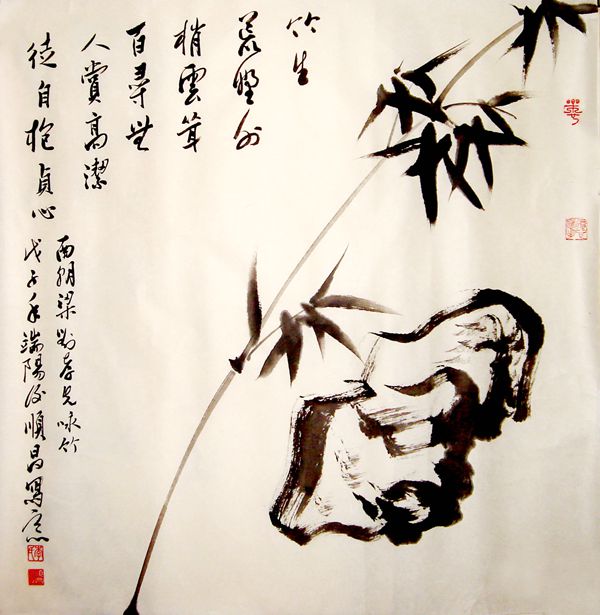 竹生
荒野外
梢雲聳
百尋無
人賞高潔
徒自抱貞心
南朝梁劉孝先咏竹
戊子年端陽後順昌寫意